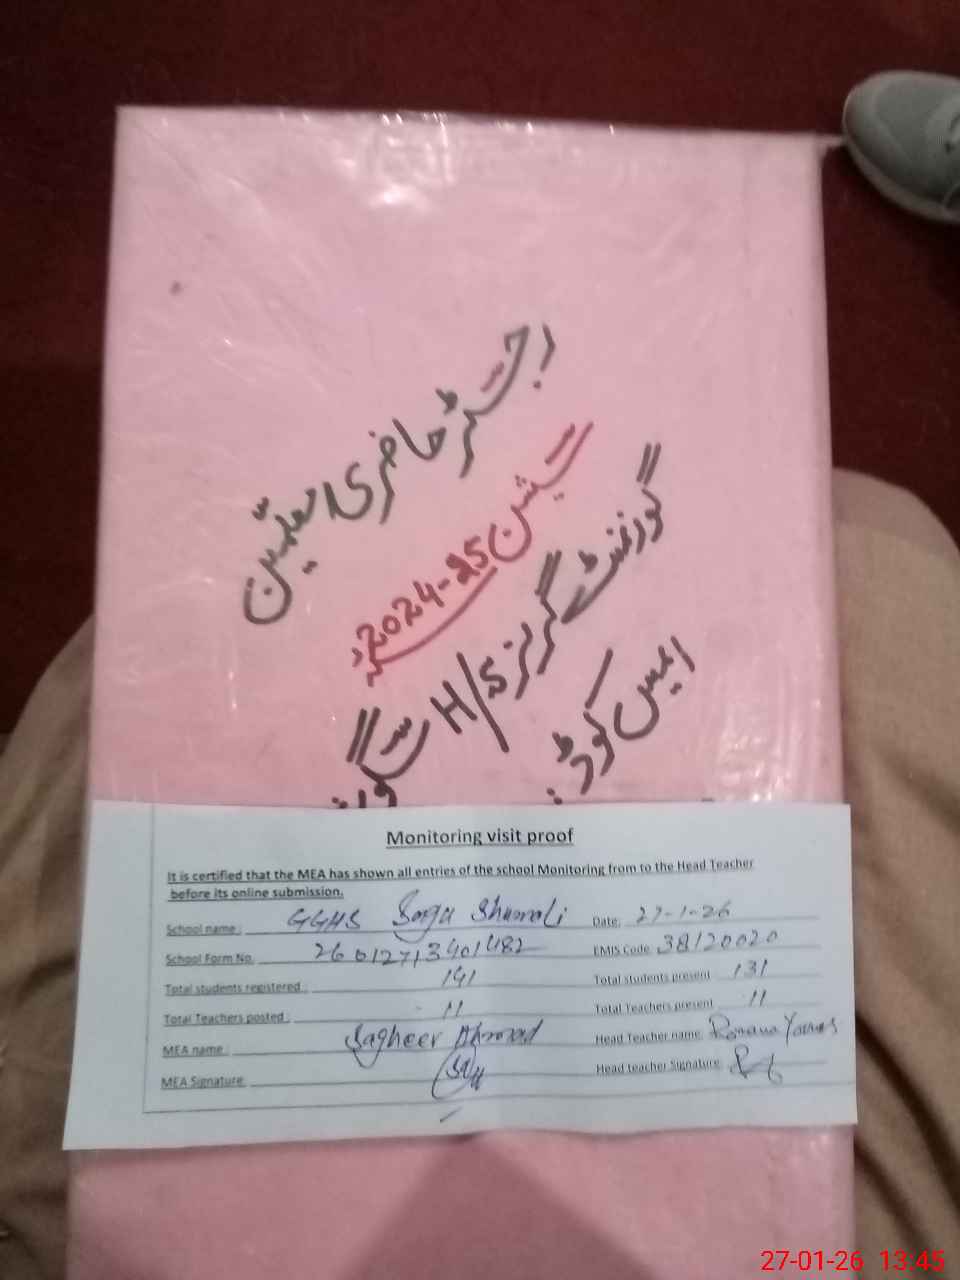 رجسٹر حاضری معلّمین
سیشن 2024-25ء
گورنمنٹ گرلز H/S سگو
ایمس کوڈ:
Monitoring visit proof
It is certified that the MEA has shown all entries of the school Monitoring from to the Head Teacher
before its online submission.
School name: GGHS Sagu Shumali Date: 27-1-26
School Form No. 26012713401482 EMIS Code 38120020
Total students registered: 141 Total students present 131
Total Teachers posted: 11 Total Teachers present 11
MEA name: Sagheer Ahmad Head Teacher name: Romana Younas
MEA Signature Head teacher Signature:
27-01-26 13:45